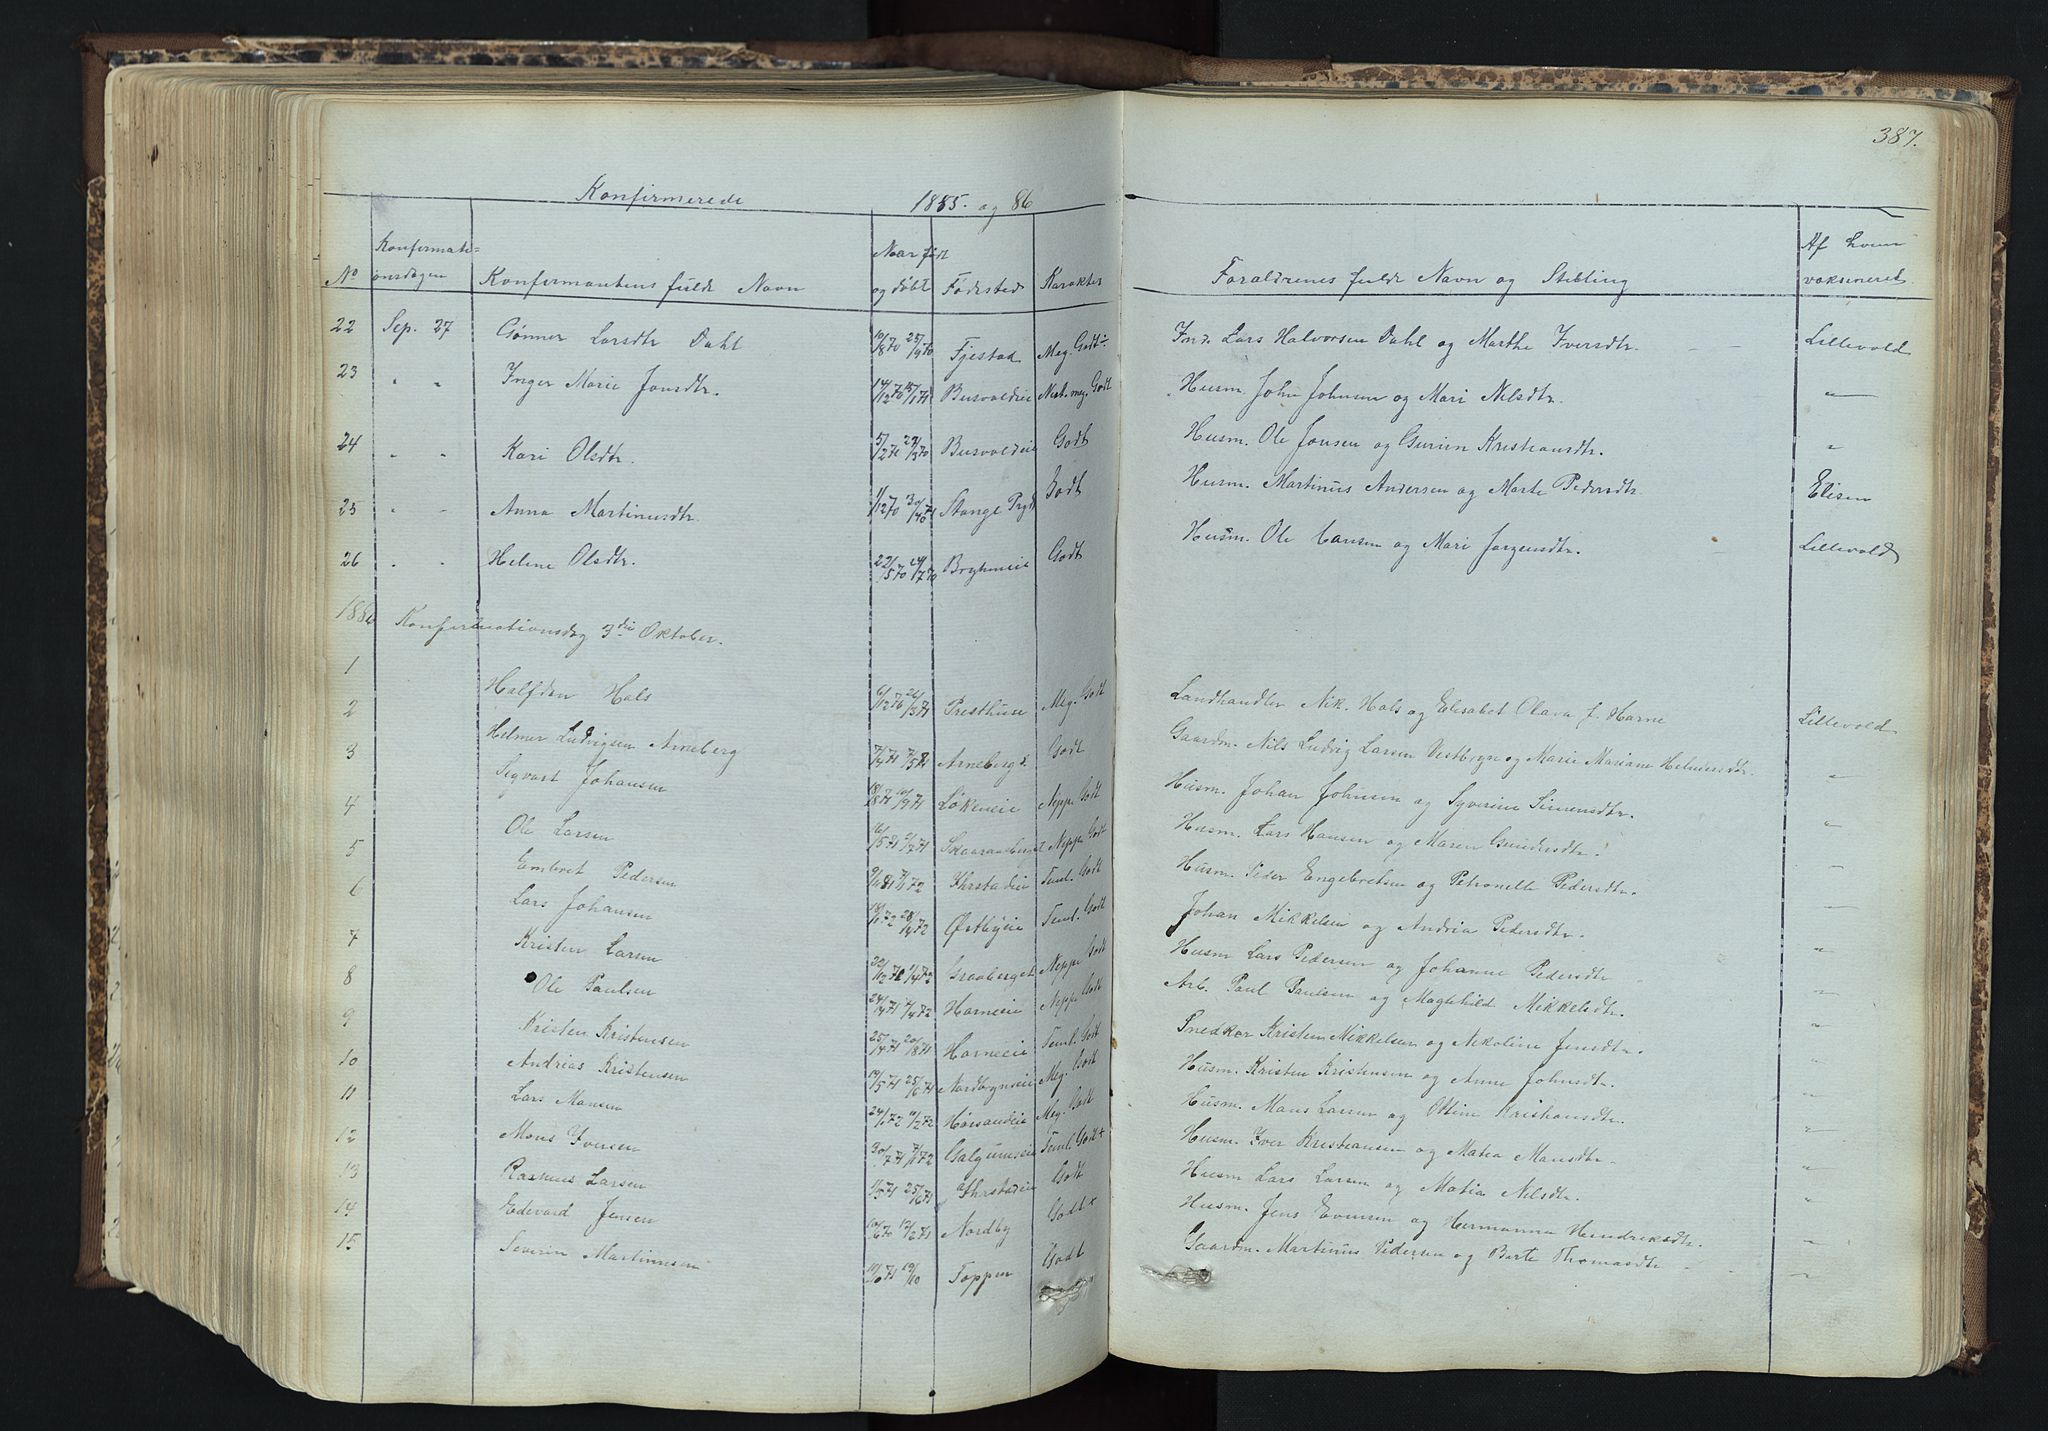 387.
Konfirmerede 1885. og 86
No Konfirmationsdagen Konfirmantens fulde Navn Naar født og døbt Fødested Karakter Forældrenes fulde Navn og Stilling Af hvem vaksineret
22 Sep. 27 Gønner Larsdtr Dahl 10/8 70 25/9 70 Fjestad Meg. Godt÷ Ind. Lars Halvorsen Dahl og Marthe Iversdtr. Lillevold
23 " " Inger Marie Jonsdtr. 14/12 70 15/1 71 Busvoldeie Næst. meg. Godt Husm. John Johnsen og Mari Nilsdtr. "
24 " " Kari Olsdtr. Busvoldeie Godt Husm. Ole Jonsen og Gurine Kristiansdtr. "
25 " " Anna Martinusdtr. Stange Prgd Godt Husm. Martinus Andersen og Marte Pedersdtr. Elisen
26 " " Helene Olsdtr. 22/5 70 24/7 70 Bryhneie Godt Husm. Ole Hansen og Mari Jørgensdtr. Lillevold
1886 Konfirmationsdag 3die Oktober.
1 Halfdan Hals Presthuse Meg. Godt Landhandler Nik. Hals og Elisabet Olava f. Horne Lillevold
2 Helmer Ludvigsen Arneberg Arneberg Godt Gaardm. Nils Ludvig Larsen Vestbryn og Marie Mariane Helmersdtr. "
3 Sigvart Johansen Løkeneie Neppe Godt Husm. Johan Johnsen og Syverine Simensdtr. "
4 Ole Larsen Skaaraaberget Neppe Godt Husm. Lars Hansen og Maren Gundersdtr. "
5 Embret Pedersen Ihrstadeie Teml. Godt Husm. Peder Engebretsen og Petronelle Pedersdtr. "
6 Lars Johansen Østbyeie Teml. Godt Johan Mikkelsen og Andria Pedersdtr. "
7 Kristen Larsen Graaberget Neppe Godt Husm Lars Pedersen og Johanne Pedersdtr "
8 Ole Paulsen Horneeie Neppe Godt Arb. Paul Paulsen og Magehild Mikkelsdtr. "
9 Kristen Kristensen Horneeie Teml. Godt Snedker Kristen Mikkelsen og Nikoline Jensdtr. "
10 Andrias Kristensen 19/5 71 25/6 71 Nordbryneie Meg. Godt Husm. Kristen Kristensen og Anne Johnsdtr. "
11 Lars Mansen Horsandeie Meg. Godt Husm. Mans Larsen og Ottine Kristiansdtr. "
12 Mons Iversen Galgumseie Teml. Godt+ Husm. Iver Kristiansen og Matea Mansdtr. "
13 Rasmus Larsen Ihrstadeie Godt Husm Lars Larsen og Matia Nilsdtr. "
14 Edevard Jensen Nordby Godt+ Husm. Jens Evensen og Hermanna Hendriksdtr. "
15 Severin Martinusen Toppen Godt Gaardm. Martinus Pedersen og Berte Thomasdtr "